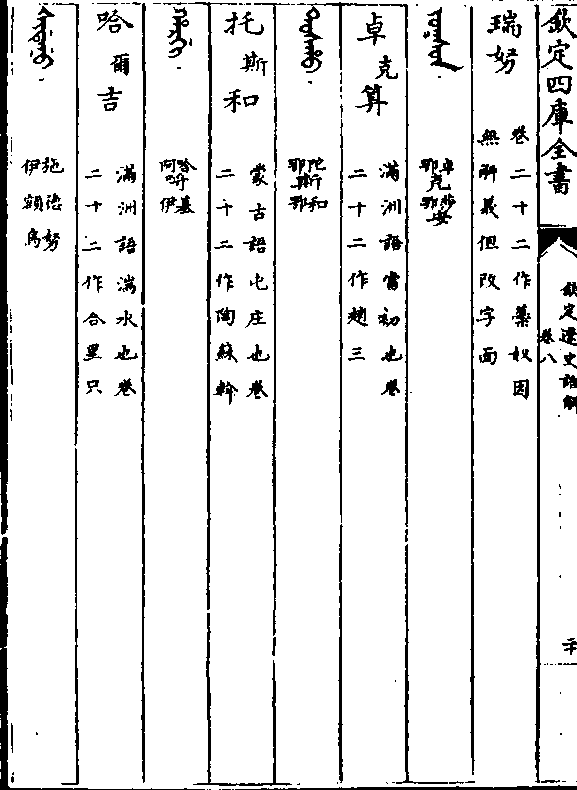 欽定四庫全書
欽定遼史語解
卷八
二十
瑞努
卷二十二作蘂奴因
無解義但改字面
卓鄂克莎鄂安
卓克算
滿洲語當初也卷
二十二作趙三
陀鄂斯和鄂
托斯和
蒙古語屯庄也卷
二十二作陶蘇斡
哈阿爾基伊
哈爾吉
滿洲語湍水也卷
二十二作合里只
施德努
伊額烏